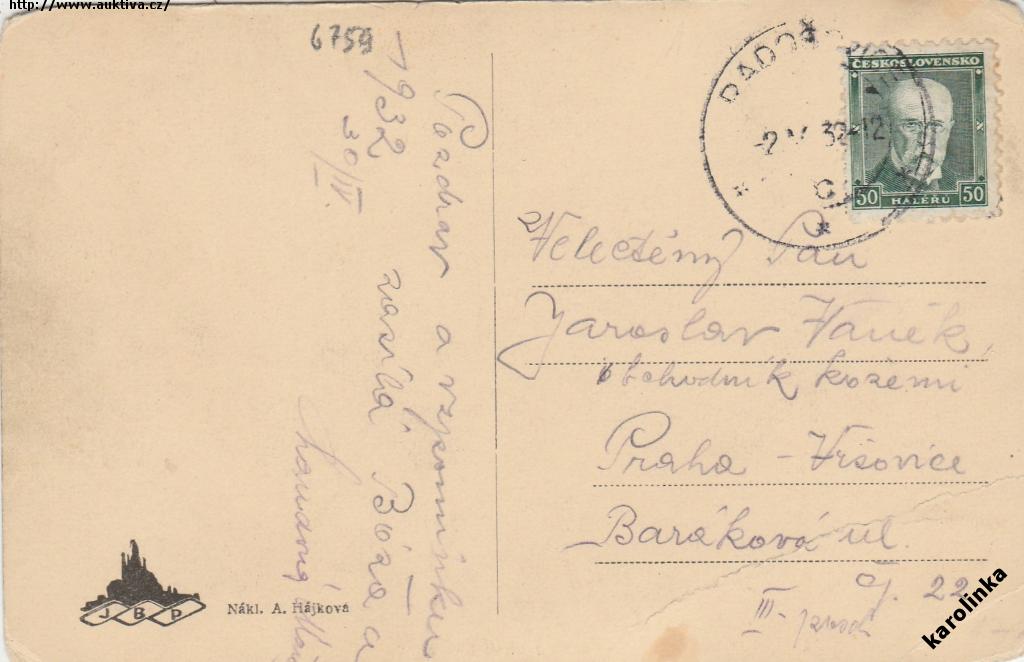 http://www.auktiva.cz/
6759
1932
30/IV.
Pozdrav a vzpomínku
zasílá Bóža a
ČESKOSLOVENSKO
50 HALÉŘŮ 50
Velectěný Pan
Jaroslav Vaněk,
obchodník kozemi
Praha - Vršovice
Baráková ul.
č. 22
III-
JBP
Nákl. A. Hájková
karolinka